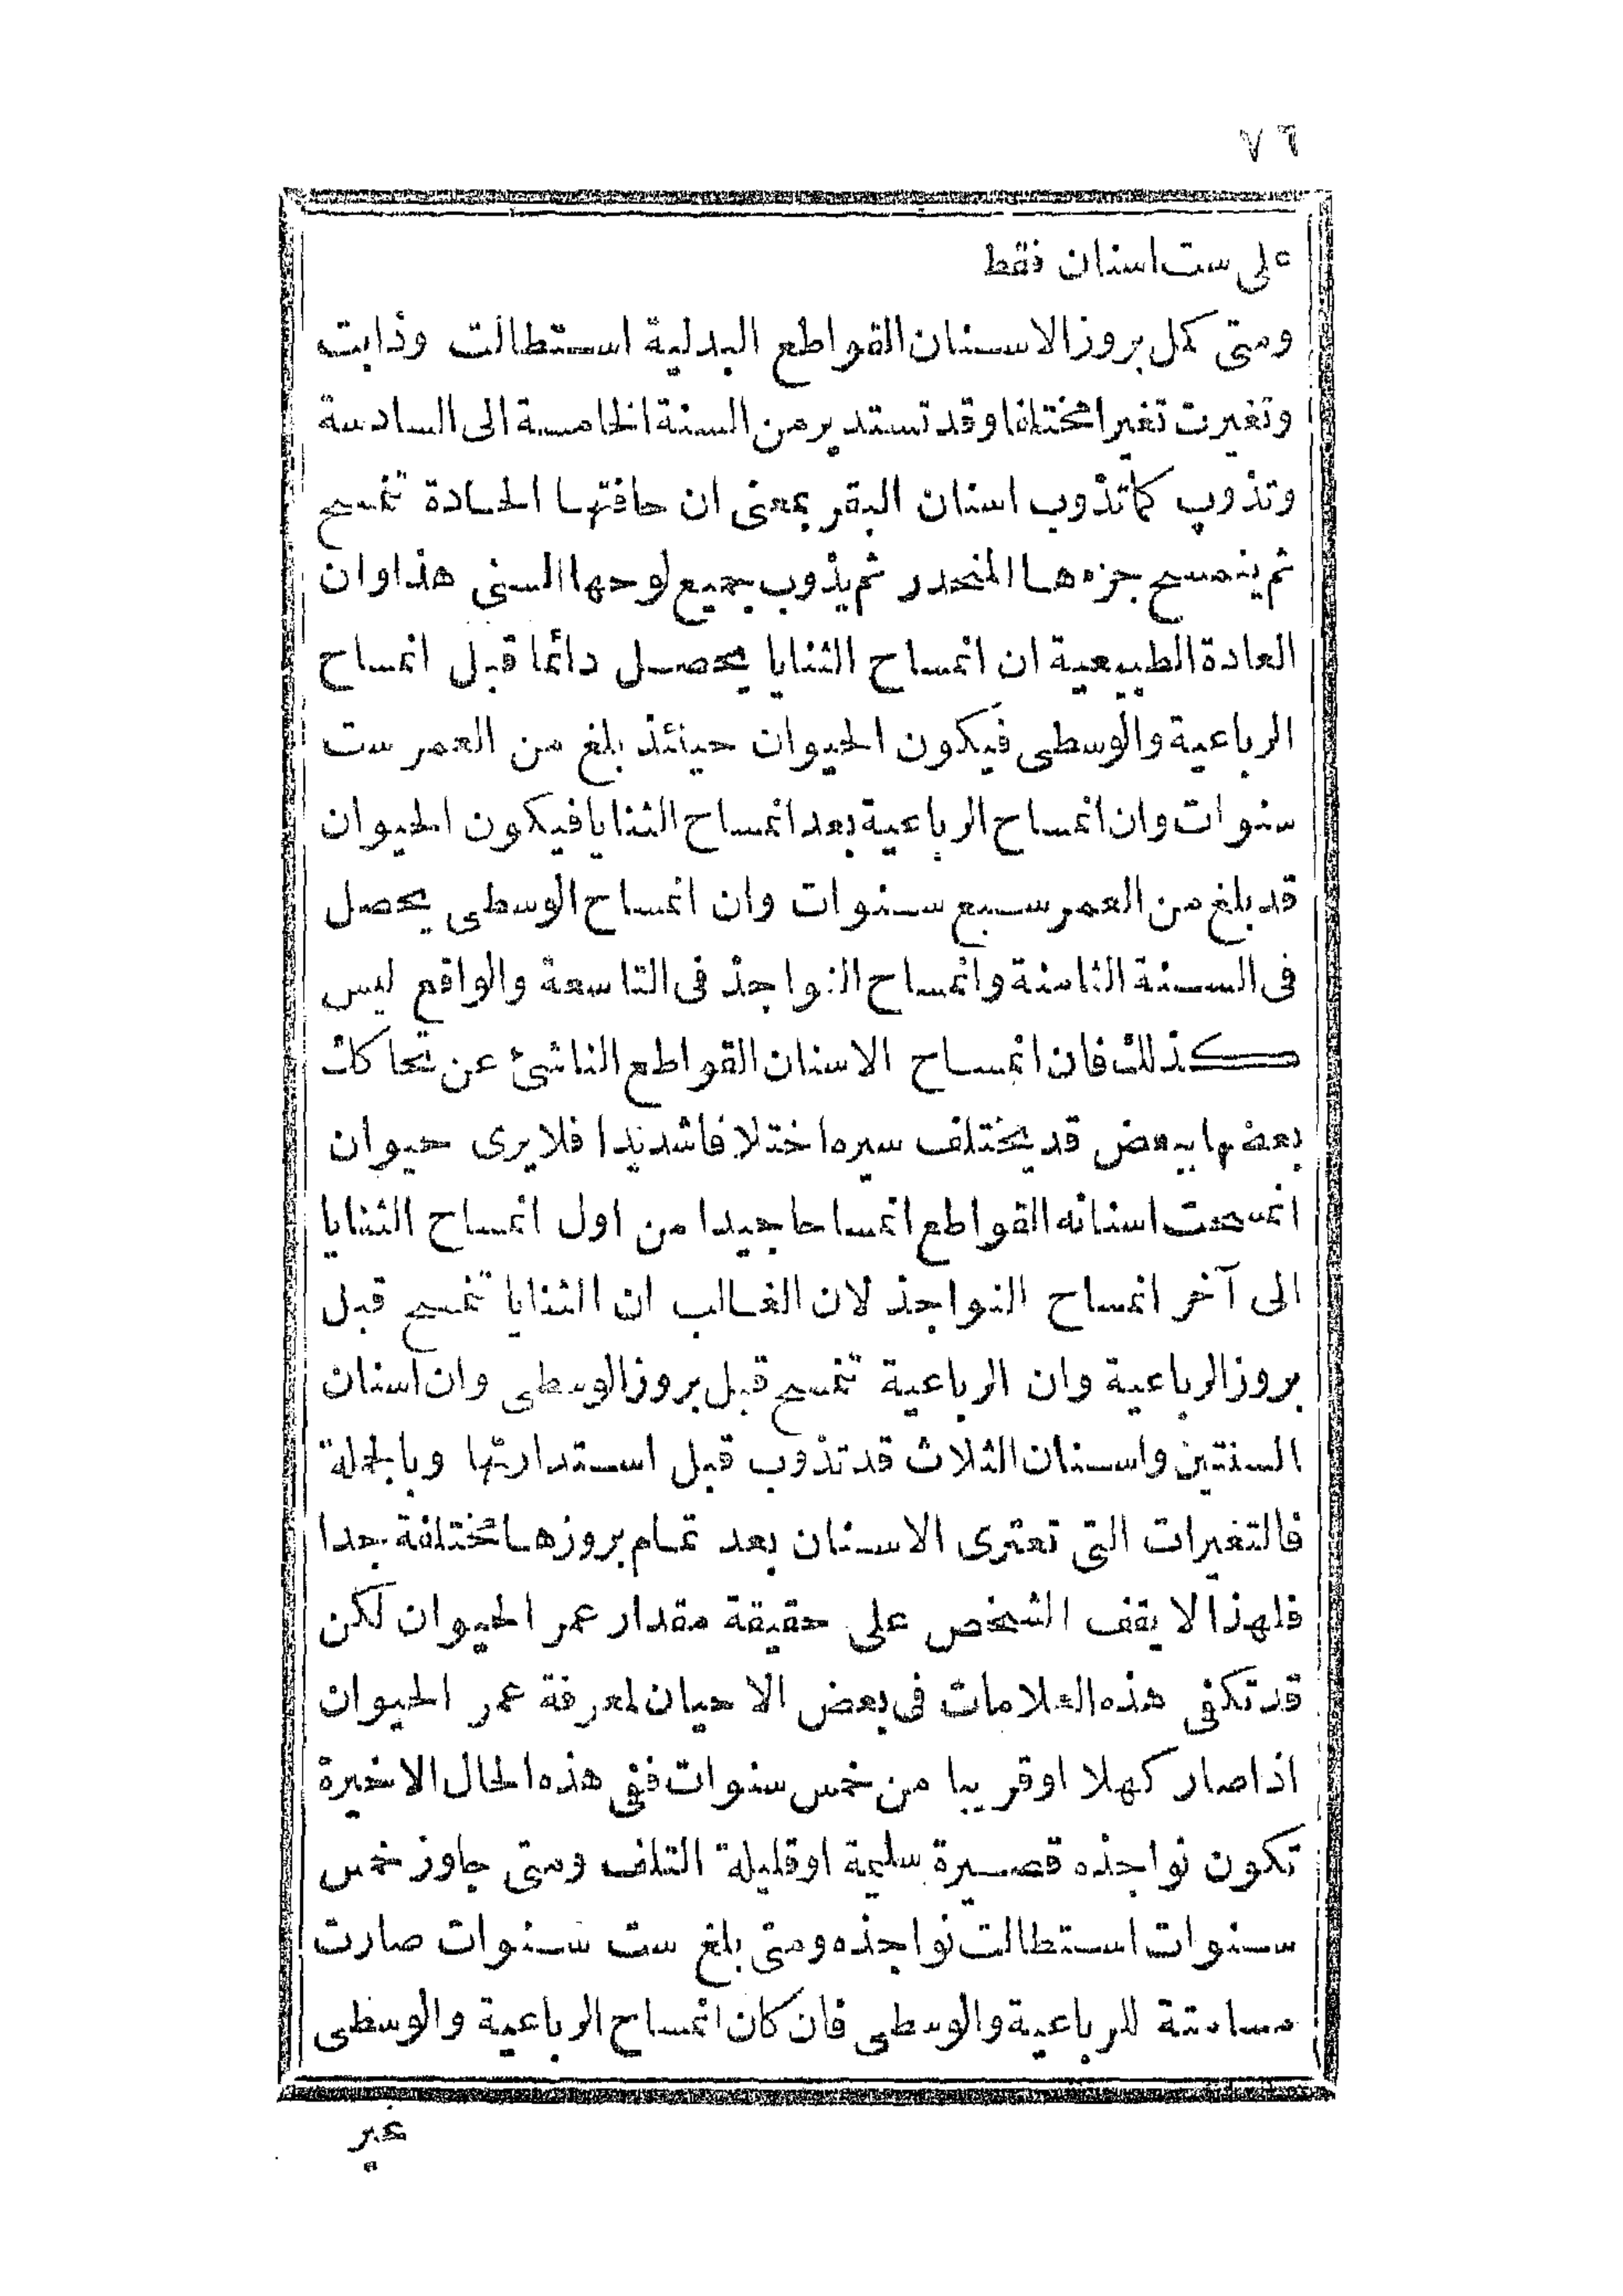 ٧٦
على ست اسنان فقط
ومتى كمل بروز الاسنان القواطع البدلية استطالت وذابت
وتغيرت تغيرا مختلفا وقد تستدير من السنة الخامسة الى السادسة
وتذوب كما تذوب اسنان البقر بمعنى ان حافتها الحادة تنمسح
ثم ينمسح جزءها المنحدر ثم يذوب جميع لوحها السنى هذا وان
العادة الطبيعية ان انمساح الثنايا يحصل دائما قبل انمساح
الرباعية والوسطى فيكون الحيوان حينئذ بلغ من العمر ست
سنوات وان انمساح الرباعية بعد انمساح الثنايا فيكون الحيوان
قد بلغ من العمر سبع سنوات وان انمساح الوسطى يحصل
فى السنة الثامنة وانمساح النواجذ فى التاسعة والواقع ليس
كذلك فان انمساح الاسنان القواطع الناشئ عن تحاكك
بعضها ببعض قد يختلف سيره اختلافا شديدا فلا يرى حيوان
انمسحت اسنانه القواطع انمساحا جيدا من اول انمساح الثنايا
الى آخر انمساح النواجذ لان الغالب ان الثنايا تنمسح قبل
بروز الرباعية وان الرباعية تنمسح قبل بروز الوسطى وان اسنان
السنتين واسنان الثلاث قد تذوب قبل استدارتها وبالجملة
فالتغيرات التى تعترى الاسنان بعد تمام بروزها مختلفة جدا
فلهذا لا يقف الشخص على حقيقة مقدار عمر الحيوان لكن
قد تكفى هذه العلامات فى بعض الاحيان لمعرفة عمر الحيوان
اذا صار كهلا او قريبا من خمس سنوات ففى هذه الحال الاخيرة
تكون نواجذه قصيرة سليمة او قليلة التلف ومتى جاوز خمس
سنوات استطالت نواجذه ومتى بلغ ست سنوات صارت
مسامتة للرباعية والوسطى فان كان انمساح الرباعية والوسطى
غير